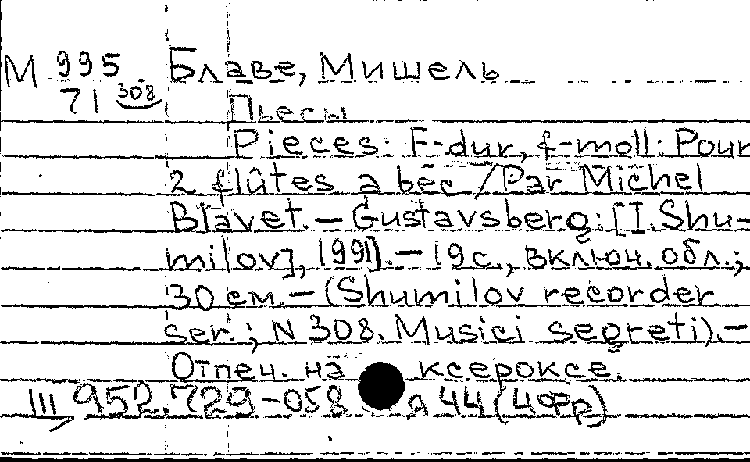 М 995 Блаве, Мишель
71 308 Пьесы
Pieces: F-dur, f-moll: Pour
2 flûtes a bec / Par Michel
Blavet. – Gustavsberg: [I. Shu-
milov], 1991]. – 19 с., включ. обл.;
30 см. – (Shumilov recorder
ser.; N 308. Musici segreti). –
Отпеч. на ксероксе.
III 952.729-058 я 44 (4Фр)